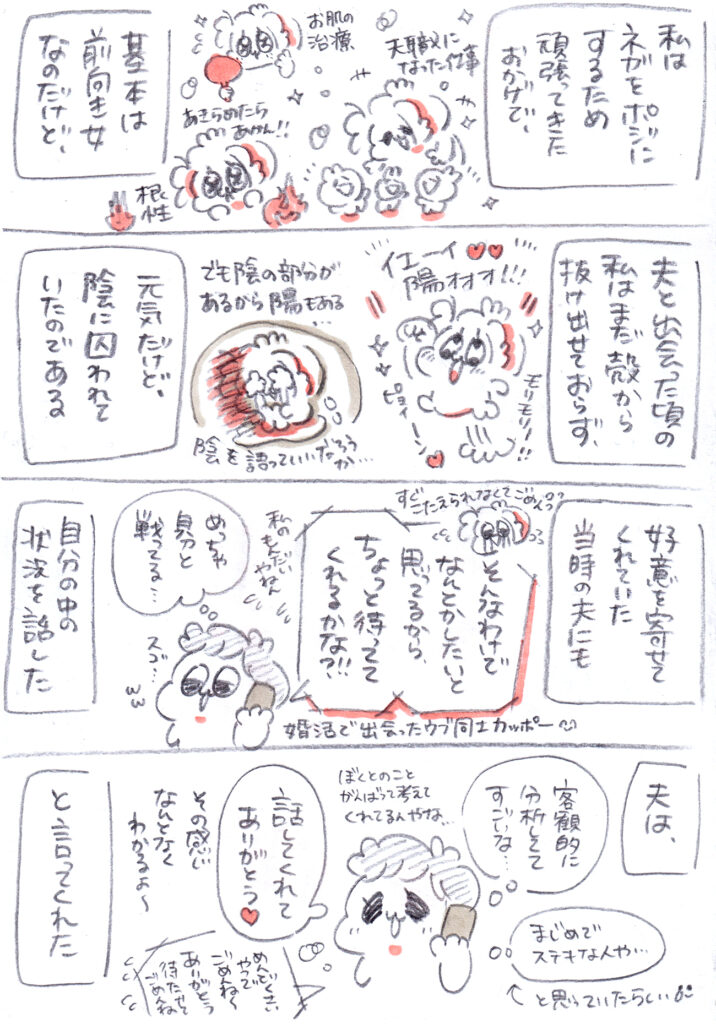 私は
ネガをポジに
するため
頑張ってきた
おかげで、
天職に
なった仕事
お肌の
治療
あきらめたら
あかん!!
根性
基本は
前向き女
なのだけど、
夫と出会った頃の
私はまだ殻から
抜け出せておらず、
イエーイ
陽オオオ!!!
モリモリー!!
ピョイーン
でも陰の部分が
あるから陽もある
…
陰を語っていいだろう
か…
元気だけど、
陰に囚われて
いたのである
好意を寄せて
くれていた
当時の夫にも
すぐ
こたえられなくてごめん??
そんなわけで
なんとかしたいと
思ってるから、
ちょっと待ってて
くれるかな?!!
私の
もんだい
やねん
めっちゃ
自分と
戦ってる…
スゴ…
婚活で出会ったウブ同士カッポー
自分の中の
状況を話した
夫は、
客観的に
分析してて
すごいな…
まじめで
ステキな人や…
↑と思っていたらしい
ぼくとのこと
がんばって考えて
くれてるんやな…
話してくれて
ありがとう♥
その感じ
なんとなく
わかるよ〜
めんどくさい
やつで
ごめんね〜
ありがとう
待たせて
ごめんね
と言ってくれた